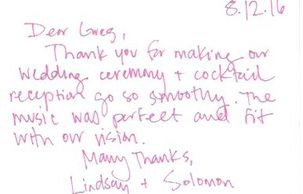 8.12.16
Dear Greg,
Thank you for making our
wedding ceremony + cocktail
reception go so smoothly. The
music was perfect and fit
with our vision.
Many Thanks,
Lindsay + Solomon